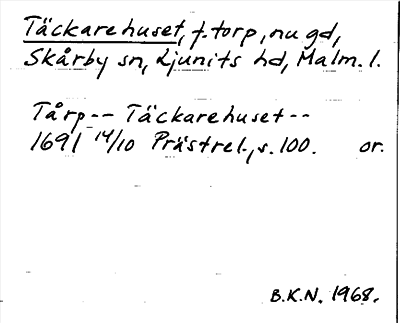 Täckarehuset, f. torp, nu gd,
Skårby sn, Ljunits hd, Malm. l.
Tårp -- Täckarehuset --
1691 14/10 Prästrel., s. 100. or.
B.K.N. 1968.